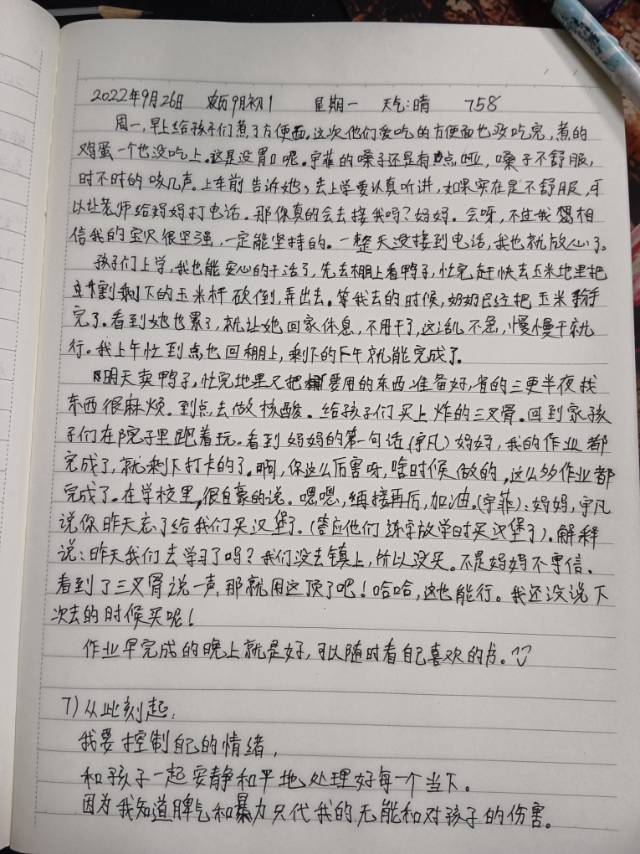 2022年9月26日 农历9月初1 星期一 天气:晴 758
周一,早上给孩子们煮了方便面,这次他们爱吃的方便面也没吃完,煮的
鸡蛋一个也没吃上。这是没胃口呢。宇菲的嗓子还是有点哑,嗓子不舒服,
时不时的咳几声。上车前告诉她,去上学要认真听讲,如果实在是不舒服,可
以让老师给妈妈打电话。那你真的会去接我吗?妈妈。会呀,不过我相
信我的宝贝很坚强,一定能坚持的。一整天没接到电话,我也就放心了。
孩子们上学,我也能安心的干活了,先去棚上看鸭子,忙完赶快去玉米地里把
割剩下的玉米秆砍倒,弄出去。等我去的时候,奶奶已经把玉米掰
完了。看到她也累了,就让她回家休息,不用干了,这活不急,慢慢干就
行。我上午忙到点也回棚上,剩下的下午就能完成了。
明天卖鸭子,忙完地里又把要用的东西准备好,省的三更半夜找
东西很麻烦。到点去做核酸。给孩子们买上炸的三叉骨。回到家孩
子们在院子里跑着玩。看到妈妈的第一句话(宇凡)妈妈,我的作业都
完成了,就剩下打卡的了。啊,你这么厉害呀,啥时候做的,这么多作业都
完成了。在学校里,很自豪的说。嗯嗯,再接再厉,加油。(宇菲):妈妈,宇凡
说你昨天忘了给我们买汉堡了。(答应他们练字放学时买汉堡了)。解释
说:昨天我们去学习了吗?我们没去镇上,所以没买。不是妈妈不守信。
看到了三叉骨说一声,那就用这顶了吧!哈哈,这也能行。我还没说下
次去的时候买呢!
作业早完成的晚上就是好,可以随时看自己喜欢的书。
7)从此刻起:
我要控制自己的情绪,
和孩子一起安静和平地处理好每一个当下。
因为我知道脾气和暴力只代我的无能和对孩子的伤害。